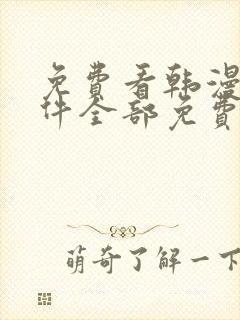 免費看韩漫
件全部免費
萌奇了解一下